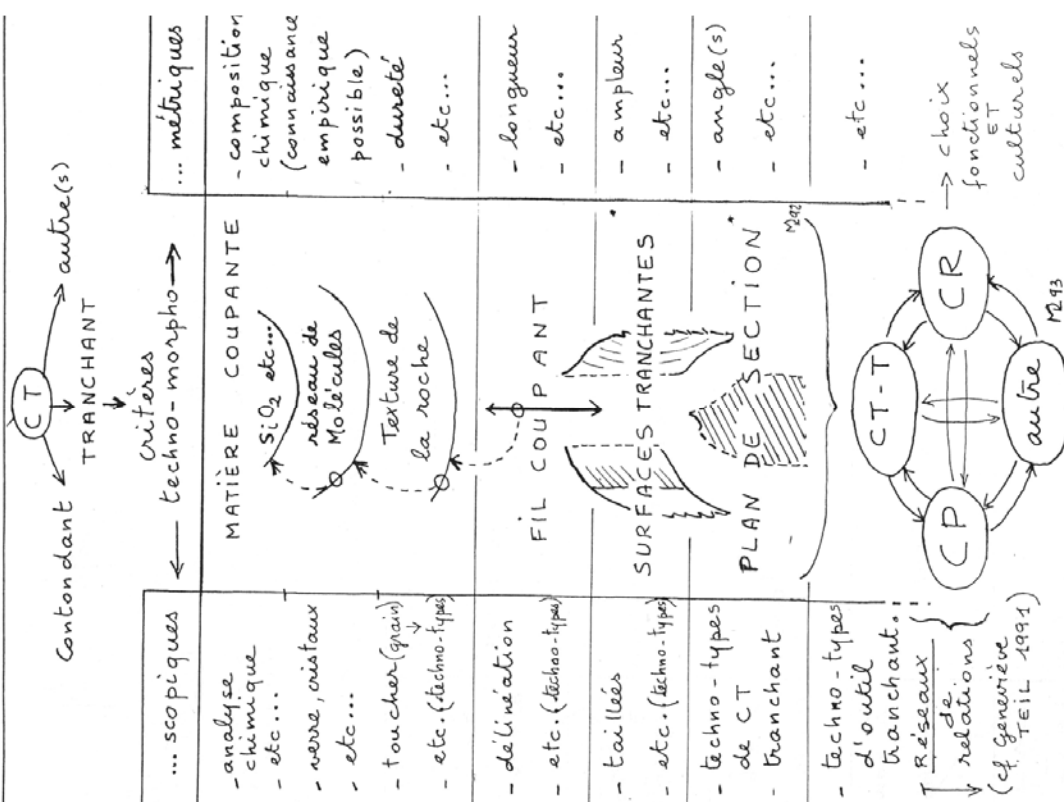 CT
contondant
TRANCHANT
autre(s)
critères
techno-morpho
... scopiques
... métriques
- analyse
chimique
- etc...
- verre, cristaux
- etc...
- toucher (grain)
- etc. (techno-types)
MATIÈRE COUPANTE
SiO2 etc...
réseau de
Molécules
Texture de
la roche
- composition
chimique
(connaissance
empirique
possible)
- dureté
- etc...
- délinéation
- etc. (techno-types)
FIL COUPANT
- longueur
- etc...
- taillées
- etc. (techno-types)
SURFACES TRANCHANTES
- ampleur
- etc...
- techno-types
de CT
tranchant
PLAN DE SECTION
- angle(s)
- etc...
M92
- techno-types
d'outil
tranchant.
- etc...
Réseaux
de
relations
(cf. Geneviève
TEIL 1991)
CP
CT-T
autre
CR
M93
→ choix
fonctionnels
ET
culturels